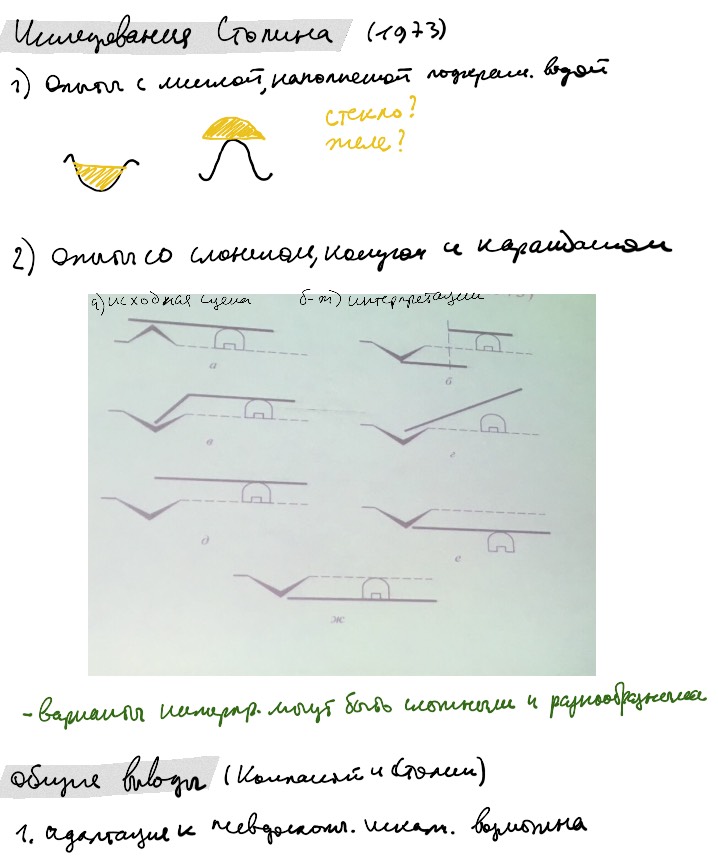 Исследования Столина (1973)
1) Опыты с миской, наполненой подкраш. водой
стекло?
желе?
2) Опыты со слоником, кольцом и карандашом
а) исходная сцена б-ж) интерпретации
а
б
в
г
д
е
ж
- варианты интерпр. могут быть сложными и разнообразными
Общие выводы (Компанский и Столин)
1. адаптация к псевдоскоп. искаж. возможна